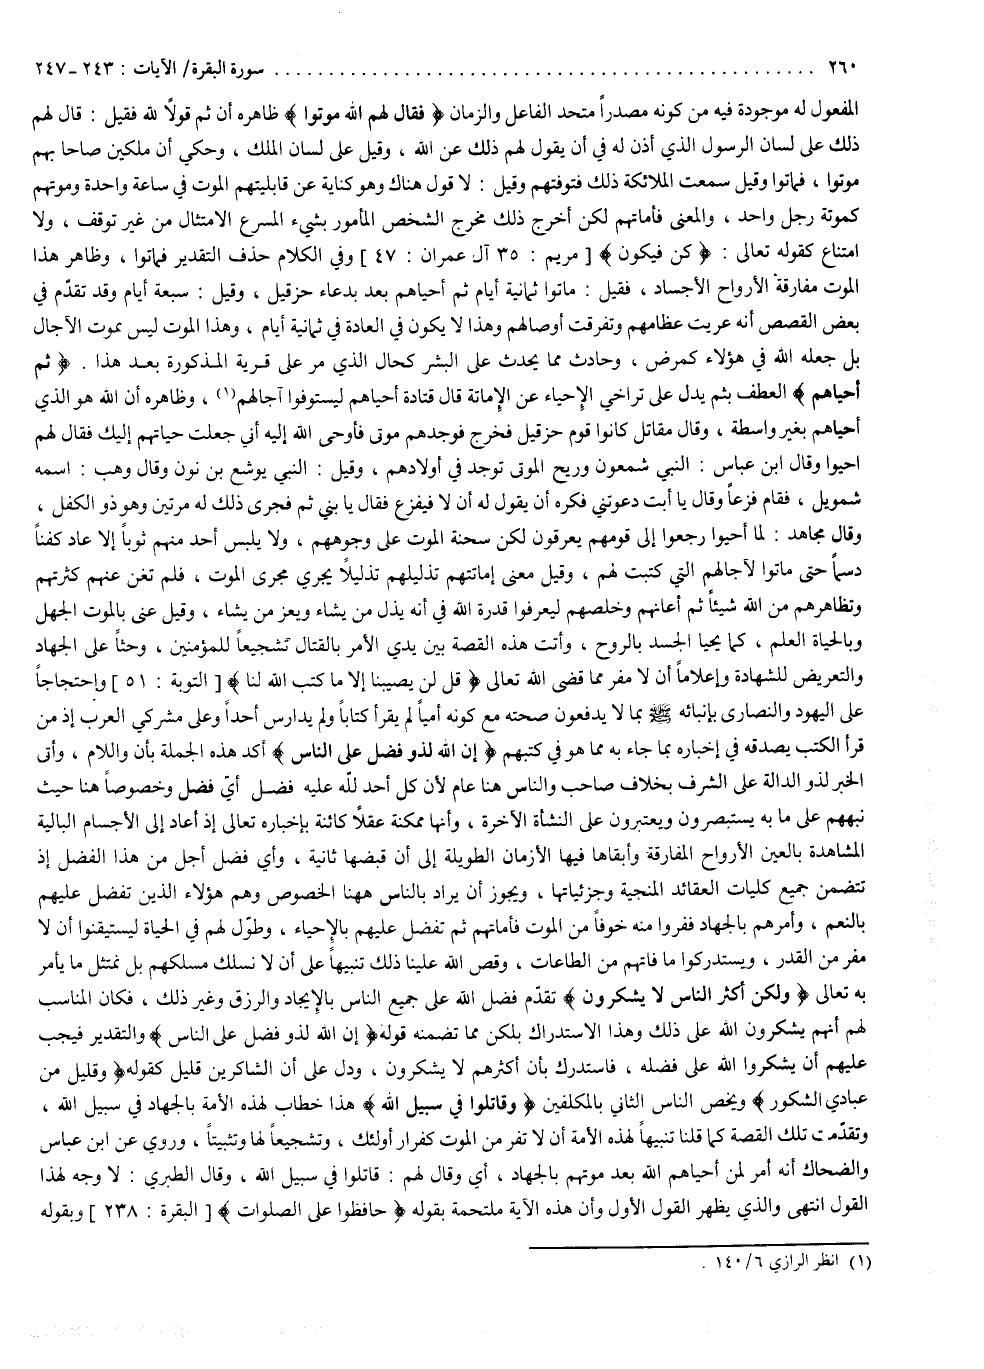 ٢٦٠ .................................................. سورة البقرة/ الآيات : ٢٤٣ ـ ٢٤٧
المفعول له موجودة فيه من كونه مصدراً متحد الفاعل والزمان ﴿ فقال لهم الله موتوا ﴾ ظاهره أن ثم قولاً لله فقيل : قال لهم
ذلك على لسان الرسول الذي أذن له في أن يقول لهم ذلك عن الله ، وقيل على لسان الملك ، وحكي أن ملكين صاحا بهم
موتوا ، فماتوا وقيل سمعت الملائكة ذلك فتوفتهم وقيل : لا قول هناك وهو كناية عن قابليتهم الموت في ساعة واحدة وموتهم
كموتة رجل واحد ، والمعنى فأماتهم لكن أخرج ذلك مخرج الشخص المأمور بشيء المسرع الامتثال من غير توقف ، ولا
امتناع كقوله تعالى : ﴿ كن فيكون ﴾ [ مريم : ٣٥ آل عمران : ٤٧ ] وفي الكلام حذف التقدير فماتوا ، وظاهر هذا
الموت مفارقة الأرواح الأجساد ، فقيل : ماتوا ثمانية أيام ثم أحياهم بعد بدعاء حزقيل ، وقيل : سبعة أيام وقد تقدّم في
بعض القصص أنه عريت عظامهم وتفرقت أوصالهم وهذا لا يكون في العادة في ثمانية أيام ، وهذا الموت ليس بموت الآجال
بل جعله الله في هؤلاء كمرض ، وحادث مما يحدث على البشر كحال الذي مر على قرية المذكورة بعد هذا . ﴿ ثم
أحياهم ﴾ العطف بثم يدل على تراخي الإحياء عن الإماتة قال قتادة أحياهم ليستوفوا آجالهم(١) ، وظاهره أن الله هو الذي
أحياهم بغير واسطة ، وقال مقاتل كانوا قوم حزقيل فخرج فوجدهم موتى فأوحى الله إليه أني جعلت حياتهم إليك فقال لهم
احيوا وقال ابن عباس : النبي شمعون وريح الموتى توجد في أولادهم ، وقيل : النبي يوشع بن نون وقال وهب : اسمه
شمويل ، فقام فزعاً وقال يا أبت دعوتني فكره أن يقول له أن لا فيفزع فقال يا بني ثم فجرى ذلك له مرتين وهو ذو الكفل ،
وقال مجاهد : لما أحيوا رجعوا إلى قومهم يعرفون لكن سحنة الموت على وجوههم ، ولا يلبس أحد منهم ثوباً إلا عاد كفناً
دسماً حتى ماتوا لآجالهم التي كتبت لهم ، وقيل معنى إماتتهم تذليلهم تذليلاً يجري مجرى الموت ، فلم تغن عنهم كثرتهم
وتظاهرهم من الله شيئاً ثم أعانهم وخلصهم ليعرفوا قدرة الله في أنه يذل من يشاء ويعز من يشاء ، وقيل عنى بالموت الجهل
وبالحياة العلم ، كما يحيا الجسد بالروح ، وأتت هذه القصة بين يدي الأمر بالقتال تشجيعاً للمؤمنين ، وحثاً على الجهاد
والتعريض للشهادة وإعلاماً أن لا مفر مما قضى الله تعالى ﴿ قل لن يصيبنا إلا ما كتب الله لنا ﴾ [ التوبة : ٥١ ] وإحتجاجاً
على اليهود والنصارى بإنبائه ﷺ بما لا يدفعون صحته مع كونه أمياً لم يقرأ كتاباً ولم يدارس أحداً وعلى مشركي العرب إذ من
قرأ الكتب يصدقه في إخباره بما جاء به مما هو في كتبهم ﴿ إن الله لذو فضل على الناس ﴾ أكد هذه الجملة بأن واللام ، وأتى
الخبر لذو الدالة على الشرف بخلاف صاحب والناس هنا عام لأن كل أحد لله عليه فضل أيّ فضل وخصوصاً هنا حيث
نبههم على ما به يستبصرون ويعتبرون على النشأة الآخرة ، وأنها ممكنة عقلاً كائنة بإخباره تعالى إذ أعاد إلى الأجسام البالية
المشاهدة بالعين الأرواح المفارقة وأبقاها فيها الأزمان الطويلة إلى أن قبضها ثانية ، وأي فضل أجل من هذا الفضل إذ
تتضمن جميع كليات العقائد المنجية وجزئياتها ، ويجوز أن يراد بالناس ههنا الخصوص وهم هؤلاء الذين تفضل عليهم
بالنعم ، وأمرهم بالجهاد ففروا منه خوفاً من الموت فأماتهم ثم تفضل عليهم بالإحياء ، وطوّل لهم في الحياة ليستيقنوا أن لا
مفر من القدر ، ويستدركوا ما فاتهم من الطاعات ، وقص الله علينا ذلك تنبيهاً على أن لا نسلك مسلكهم بل نمتثل ما يأمر
به تعالى ﴿ ولكن أكثر الناس لا يشكرون ﴾ تقدّم فضل الله على جميع الناس بالإيجاد والرزق وغير ذلك ، فكان المناسب
لهم أنهم يشكرون الله على ذلك وهذا الاستدراك بلكن مما تضمنه قوله ﴿ إن الله لذو فضل على الناس ﴾ والتقدير فيجب
عليهم أن يشكروا الله على فضله ، فاستدرك بأن أكثرهم لا يشكرون ، ودل على أن الشاكرين قليل كقوله ﴿ وقليل من
عبادي الشكور ﴾ ويخص الناس الثاني بالمكلفين ﴿ وقاتلوا في سبيل الله ﴾ هذا خطاب لهذه الأمة بالجهاد في سبيل الله ،
وتقدّمت تلك القصة كما قلنا تنبيهاً لهذه الأمة أن لا تفر من الموت كفرار أولئك ، وتشجيعاً لها وتثبيتاً ، وروي عن ابن عباس
والضحاك أنه أمر لمن أحياهم الله بعد موتهم بالجهاد ، أي وقال لهم : قاتلوا في سبيل الله ، وقال الطبري : لا وجه لهذا
القول انتهى والذي يظهر القول الأول وأن هذه الآية ملتحمة بقوله ﴿ حافظوا على الصلوات ﴾ [ البقرة : ٢٣٨ ] وبقوله
(١) انظر الرازي ٦/ ١٤٠ .